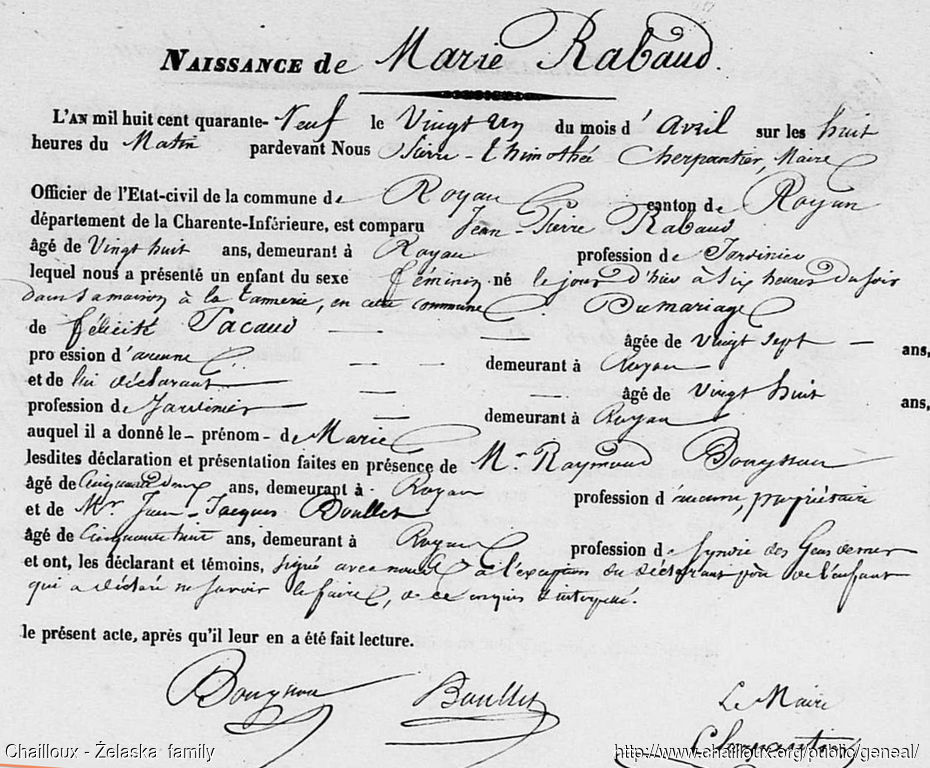 NAISSANCE de Marie Rabaud.
L'AN mil huit cent quarante-Neuf le Vingt un du mois d'Avril sur les huit
heures du Matin pardevant Nous Pierre-Thimothée Cherpantier, Maire
Officier de l'Etat-civil de la commune de Royan canton de Royan
département de la Charente-Inférieure, est comparu Jean-Pierre Rabaud
âgé de Vingt huit ans, demeurant à Royan profession de Jardinier
lequel nous a présenté un enfant du sexe féminin né le jour d'hier à Six heures du Soir
dans sa maison à la tannerie, en cette commune Du mariage
de félicité Pacaud âgée de Vingt sept ans,
pro ession d'aucune demeurant à Royan
et de lui déclarant âgé de Vingt huit ans,
profession de Jardinier demeurant à Royan
auquel il a donné le - prénom - de Marie
lesdites déclaration et présentation faites en présence de Mr Raymond Bouyssou
âgé de Cinquante deux ans, demeurant à Royan profession d'aucune, propriétaire
et de Mr Jean-Jacques Boullet
âgé de Cinquante huit ans, demeurant à Royan profession de Syndic des Gens de mer
et ont, les déclarant et témoins, signé avec nous à l'exception du déclarant père de l'enfant
qui a déclaré ne savoir le faire, de ce enquis interpellé.
le présent acte, après qu'il leur en a été fait lecture.
Bouyssou Boullet Le Maire
Cherpantier
Chailloux - Żelaska family http://www.chailloux.org/public/geneal/